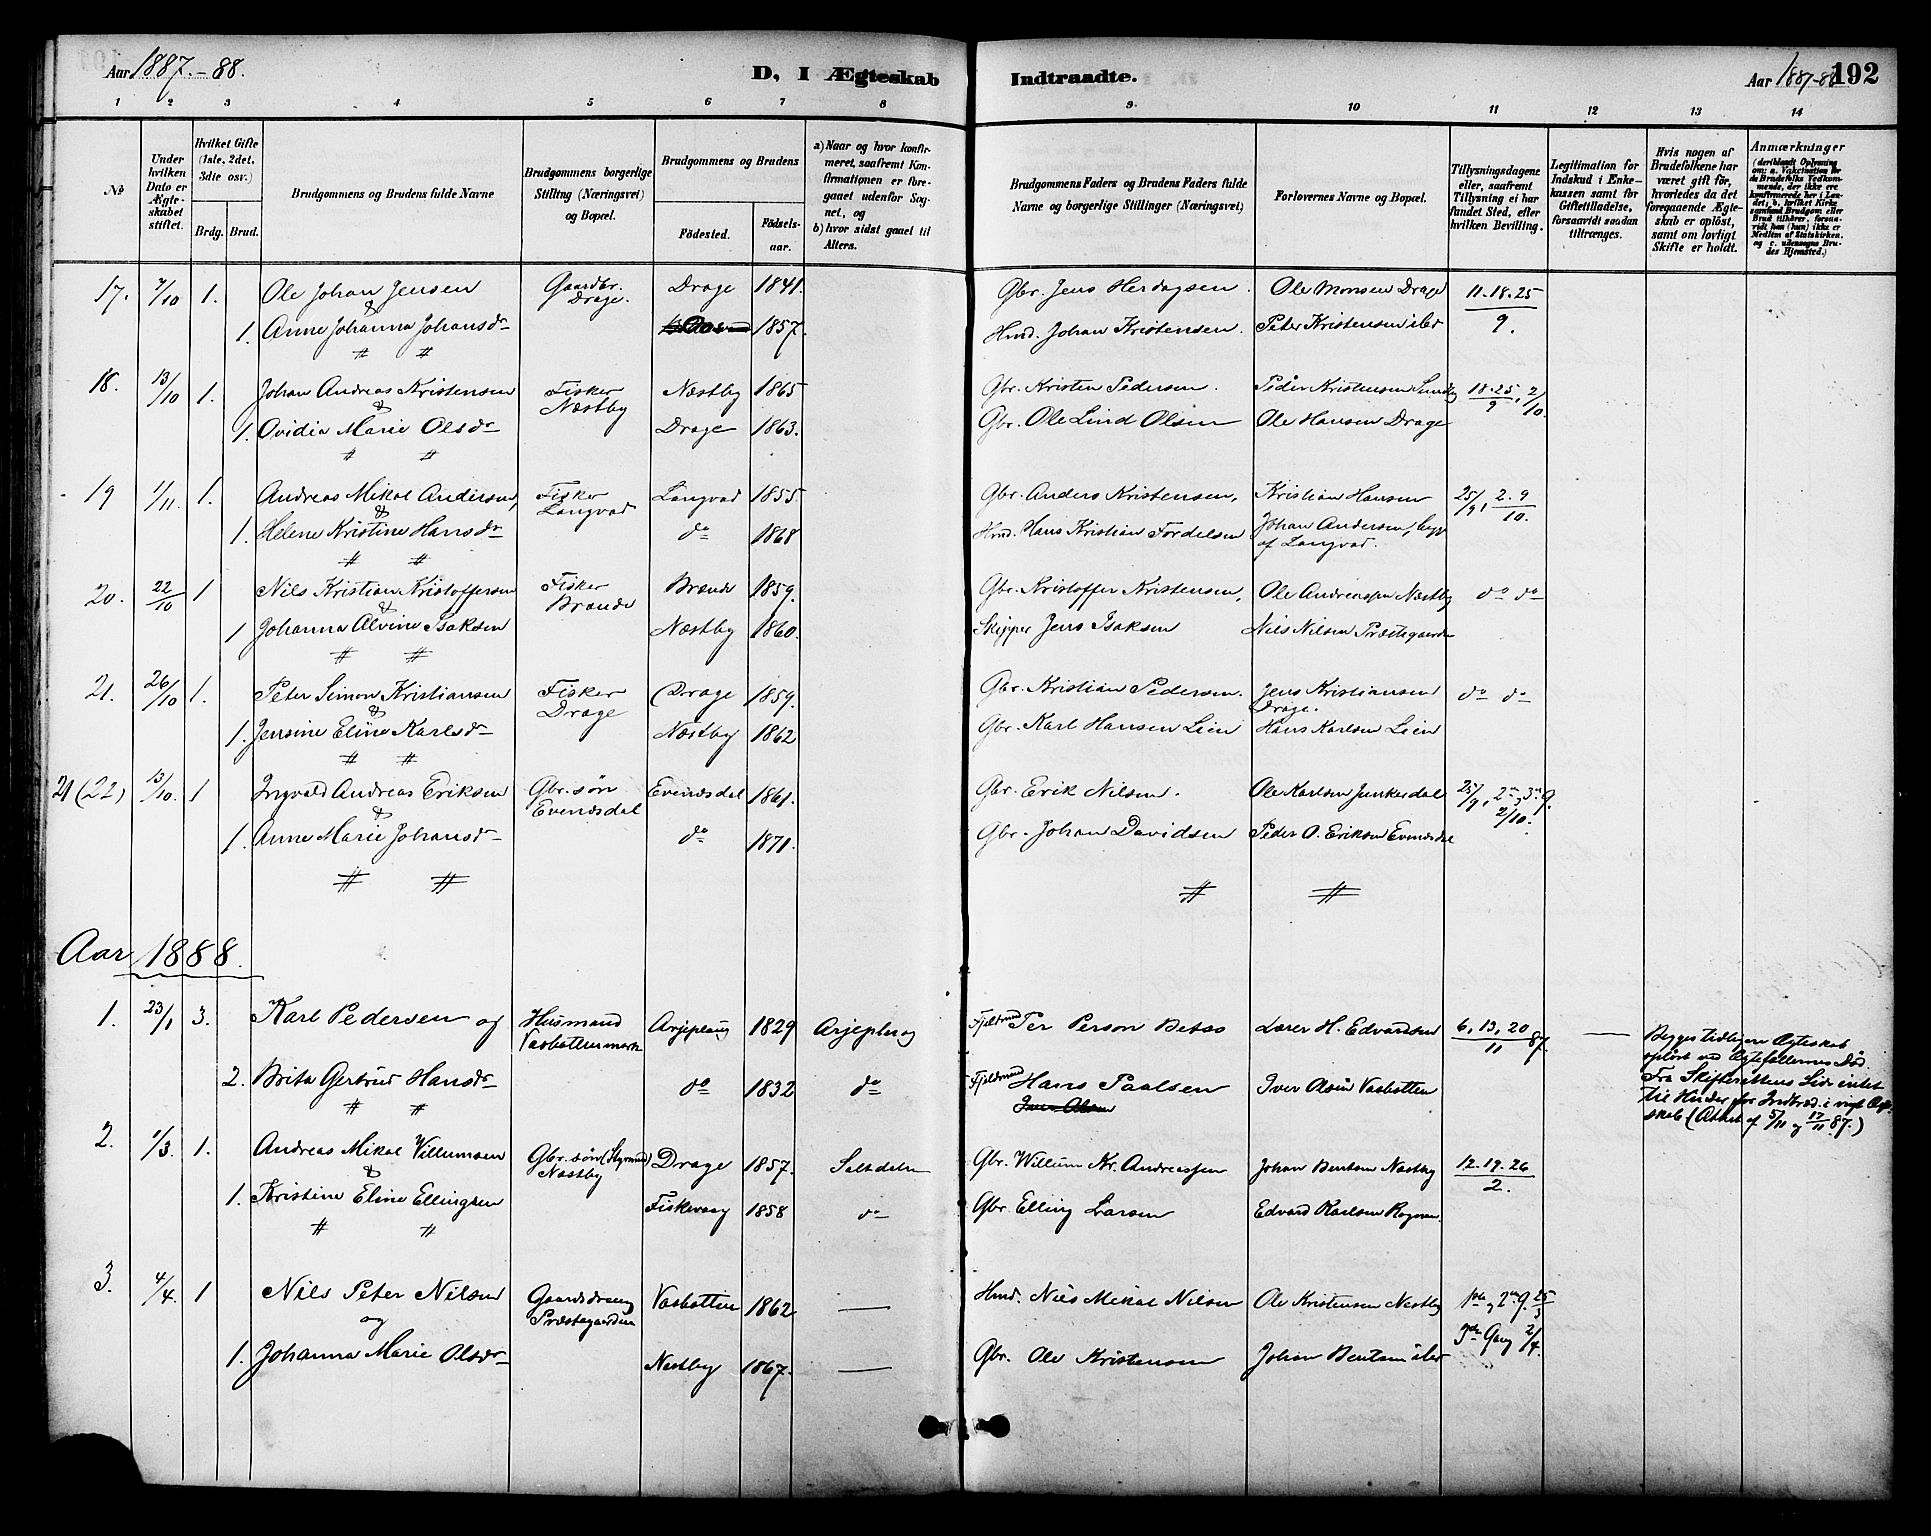 Aar 1887.-88.
D, I Ægteskab Indtraadte.
Aar 1887-88 192
1 2 3 4 5 6 7 8 9 10 11 12 13 14
No
Under hvilken Dato er Ægteskabet stiftet.
Hvilket Gifte (1ste, 2det, 3die osv.)
Brdg. Brud.
Brudgommens og Brudens fulde Navne
Brudgommens borgerlige Stilling (Næringsvei) og Bopæl.
Brudgommens og Brudens
Födested. Födselsaar.
a) Naar og hvor konfirmeret, saafremt Konfirmationen er foregaaet udenfor Sognet, og
b) hvor sidst gaaet til Alters.
Brudgommens Faders og Brudens Faders fulde Navne og borgerlige Stillinger (Næringsvei)
Forlovernes Navne og Bopæl.
Tillysningsdagene eller, saafremt Tillysning ei har fundet Sted, efter hvilken Bevilling.
Legitimation for Indskud i Enkekassen samt for Giftetilladelse, forsaavidt saadan tiltrænges.
Hvis nogen af Brudefolkene har været gift för, hvorledes da det foregaaende Ægteskab er oplöst, samt om lovligt Skifte er holdt.
Anmærkninger
17. 7/10 1. Ole Johan Jensen Gaardbr. Drage. Drage 1841. Gbr. Jens Herdagsen. Ole Monsen Drage 11.18.25
&
1. Anne Johanna Johansdr 1857. Hmd. Johan Kristensen. Peter Kristensen ibd 9.
18. 13/10 1. Johan Andreas Kristensen Fisker Næstby Næstby 1865 Gbr. Kristen Pedersen. Peder Kristensen 18.25/9, 2/10.
&
1. Ovidia Marie Olsdr Drage 1863. Gbr. Ole Lind Olsen Ole Hansen Drage
19 1/11. 1. Andreas Mikal Andersen, Fisker Langvad Langvad 1855 Gbr. Anders Kristensen, Kristian Hansen 25/9, 2.9/10.
&
1. Helene Kristine Hansdr do 1868 Hmd. Hans Kristian Fordelsen Johan Andersen, begge af Langvad.
20. 22/10 1 Nils Kristian Kristoffersen Fisker Brænde Brænde 1859. Gbr. Kristoffer Kristensen, Ole Andreassen Næstby do do
&
1 Johanna Alvine Isaksen Næstby 1860. Skipper Jens Isaksen Nils Nilsen Præstegaarden
21. 26/10 1. Peter Simon Kristiansen Fisker Drage Drage 1859. Gbr. Kristian Pedersen. Jens Kristiansen Drage. do do
&
1. Jensine Eline Karlsdr Næstby 1862 Gbr. Karl Hansen Lien Hans Karlsen Lien
21 (22) 13/10. 1 Ingvald Andreas Eriksen Gbr. søn Evenesdal Evenesdal 1861. Gbr. Erik Nilsen. Ole Karlsen Junkerdal 25/9, 2den, 3die G. 2/10.
&
1. Anne Marie Johansdr do 1871. Gbr. Johan Davidsen Peder O. Eriksen Evenesdal
Aar 1888.
1. 23/1 3. Karl Pedersen og Husmand Vasbottenmark Arjeplaug 1829 Arjeploug Fjeldmd Per Person Betso Lærer H. Edvardsen 6, 13, 20/11 87. —
2. Brita Gertrud Hansdr do 1832 do Fjeldmd Hans Paalsen Iver Olsen Vasbotten
Iver Olsen
Begges tidligere Ægteskab
opløst ved Ægtefællernes Død
Fra Skifterettens Side intet
til Hinder for Indtræd. i nyt Ægteskab (Attest af 5/11 og 17/11 87.)
2. 1/3. 1. Andreas Mikal Villumsen Gbr. søn (Styrmd) Næstby Drage 1857. Saltdalen Gbr. Willum Kr. Andreassen Johan Bentsen Næstby 12.19.26
&
1. Kristine Eline Ellingsen Fiskevaag 1858 do Gbr. Elling Larsen Edvard Karlsen Rognan. 2.
3. 4/4. 1 Nils Peter Nilsen Gaardsdreng Præstegaarden Vasbotten 1862 — Hmd. Nils Mikal Nilsen Ole Kristensen Næstby 1ste og 2den G. 25/3
og
1. Johanna Marie Olsdr Næstby 1867. — Gbr. Ole Kristensen Johan Bentsen ibd 3die Gang 2/4.